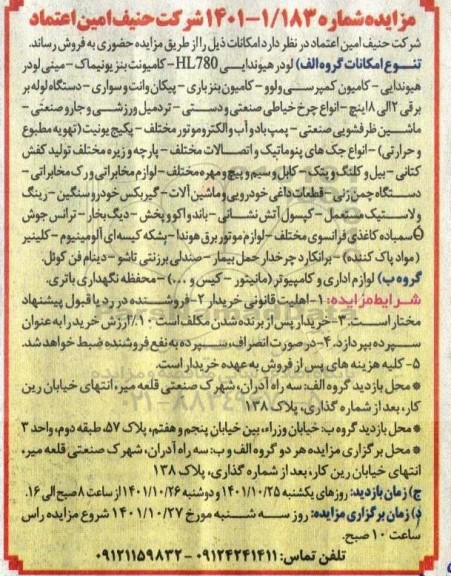 مزایده شماره ۱/۱۸۳-۱۴۰۱ شرکت حنیف امین اعتماد
شرکت حنیف امین اعتماد در نظر دارد امکانات ذیل را از طریق مزایده حضوری به فروش رساند.
تنوع امکانات گروه الف) لودر هیوندایی HL780- کامیونت بنز یونیماک - مینی لودر
هیوندایی - کامیون کمپرسی ولوو - کامیون بنز باری - پیکان وانت و سواری - دستگاه لوله بر
برقی ۲ الی ۸ اینچ - انواع چرخ خیاطی صنعتی و دستی - تردمیل ورزشی و جارو صنعتی -
ماشین ظرفشویی صنعتی - پمپ باد و آب و الکتروموتور مختلف - پکیج یونیت (تهویه مطبوع
و حرارتی) - انواع جک های پنوماتیک و اتصالات مختلف - پارچه و زیره مختلف تولید کفش
کتانی - بیل و کلنگ و پتک - کابل و سیم و پیچ و مهره مختلف - لوازم مخابراتی و رک مخابراتی -
دستگاه چمن زنی - قطعات داغی خودرویی و ماشین آلات - گیربکس خودرو سنگین - رینگ
و لاستیک مستعمل - کپسول آتش نشانی - باند و اکو و پخش - دیگ بخار - ترانس جوش
سمباده کاغذی فرانسوی مختلف - لوازم موتور برق هوندا - بشکه کیسه ای آلومینیوم - کلینیر
(مواد پاک کننده) - برانکارد چرخدار حمل بیمار - صندلی برزنتی تاشو - دینام فن کوئل.
گروه ب) لوازم اداری و کامپیوتر (مانیتور - کیس و ...) - محفظه نگهداری باتری.
شرایط مزایده: ۱- اهلیت قانونی خریدار ۲- فروشنده در رد یا قبول پیشنهاد
مختار است. ۳- خریدار پس از برنده شدن مکلف است ۱۰٪ ارزش خرید را به عنوان
سپرده بپردازد. ۴- در صورت انصراف، سپرده به نفع فروشنده ضبط خواهد شد.
۵- کلیه هزینه های پس از فروش به عهده خریدار است.
* محل بازدید گروه الف: سه راه آدران، شهرک صنعتی قلعه میر، انتهای خیابان رین
کار، بعد از شماره گذاری، پلاک ۱۳۸
* محل بازدید گروه ب: خیابان وزراء، بین خیابان پنجم و هفتم، پلاک ۵۷، طبقه دوم، واحد ۳
* محل برگزاری مزایده هر دو گروه الف و ب: سه راه آدران، شهرک صنعتی قلعه میر،
انتهای خیابان رین کار، بعد از شماره گذاری، پلاک ۱۳۸
ج) زمان بازدید: روزهای یکشنبه ۱۴۰۱/۱۰/۲۵ و دوشنبه ۱۴۰۱/۱۰/۲۶ از ساعت ۸ صبح الی ۱۶.
د) زمان برگزاری مزایده: روز سه شنبه مورخ ۱۴۰۱/۱۰/۲۷ شروع مزایده راس
ساعت ۱۰ صبح.
تلفن تماس: ۰۹۱۲۴۲۴۱۴۱۱ - ۰۹۱۲۱۱۵۹۸۳۲